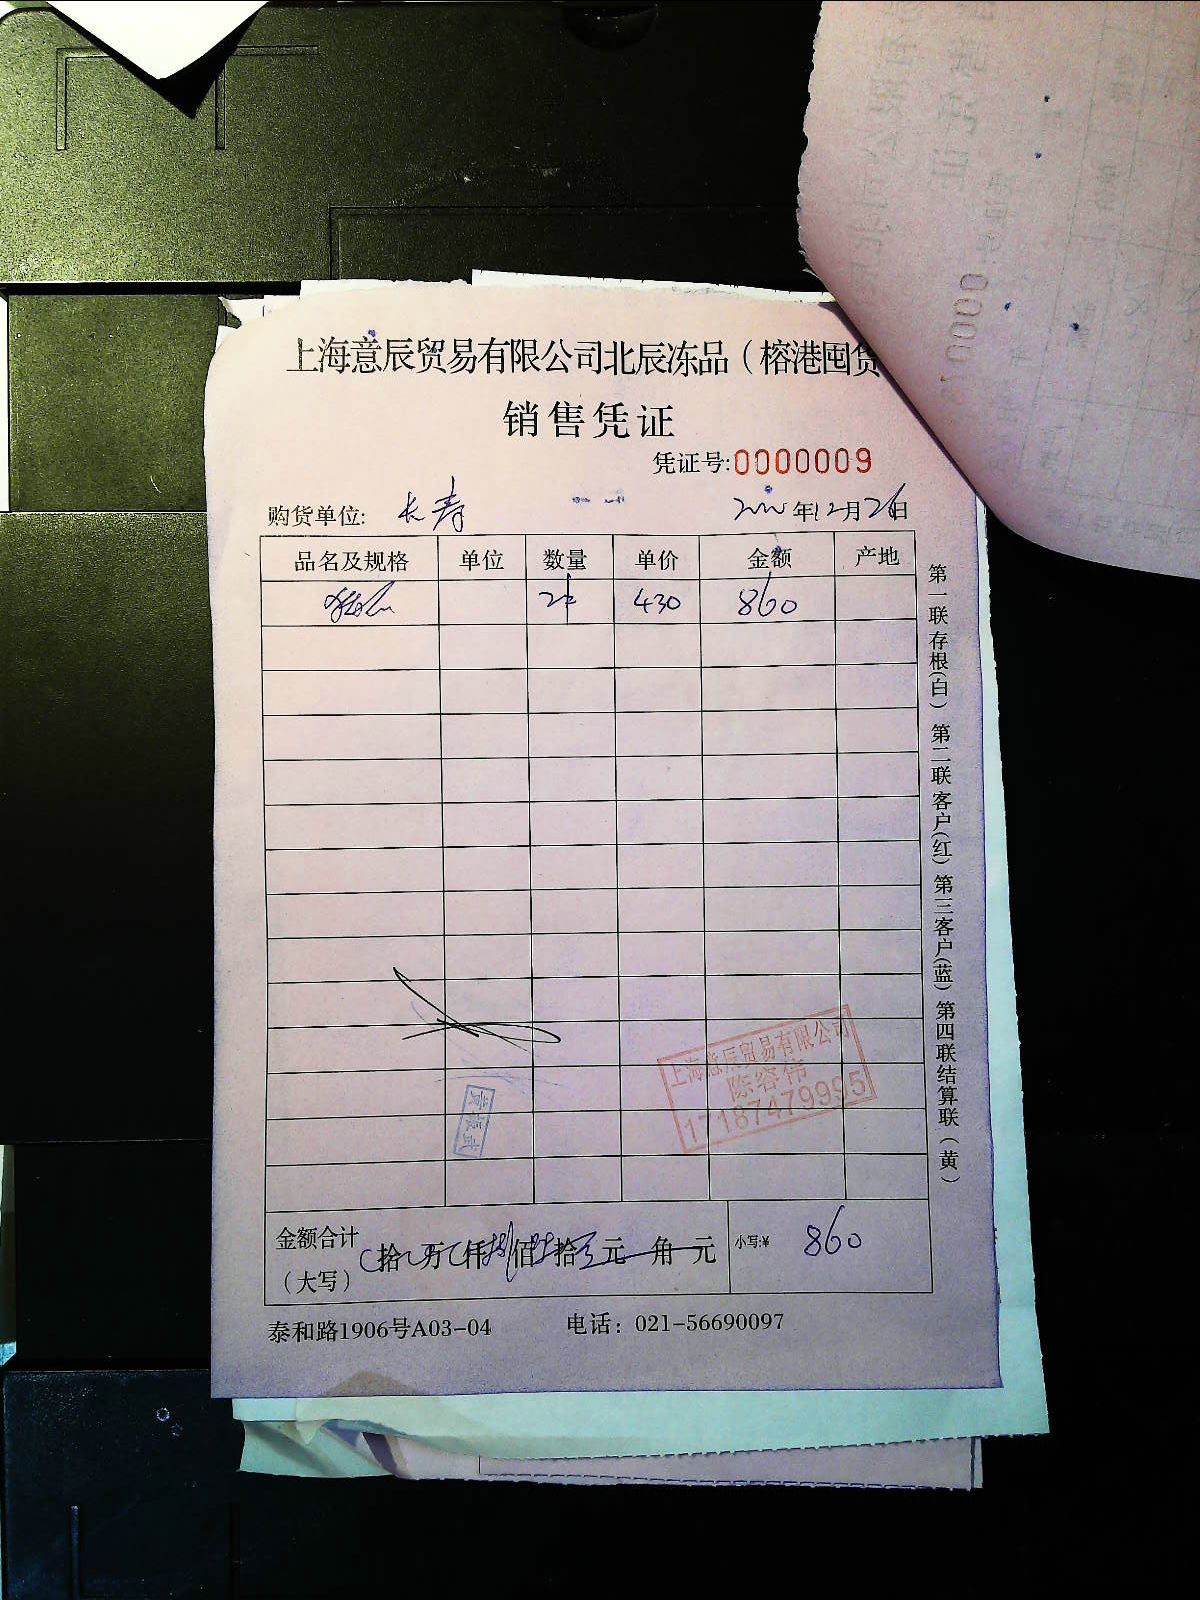 上海意辰贸易有限公司北辰冻品（榕港囤货
销售凭证
凭证号:0000009
购货单位: 长寿 年12月26日
品名及规格 单位 数量 单价 金额 产地
2件 430 860
第一联存根(白) 第二联客户(红) 第三客户(蓝) 第四联结算联(黄)
上海意辰贸易有限公司
陈容伟
17187479995
金额合计
(大写) 拾 万 仟捌佰陆拾 元 角 元 小写:¥ 860
泰和路1906号A03-04 电话: 021-56690097